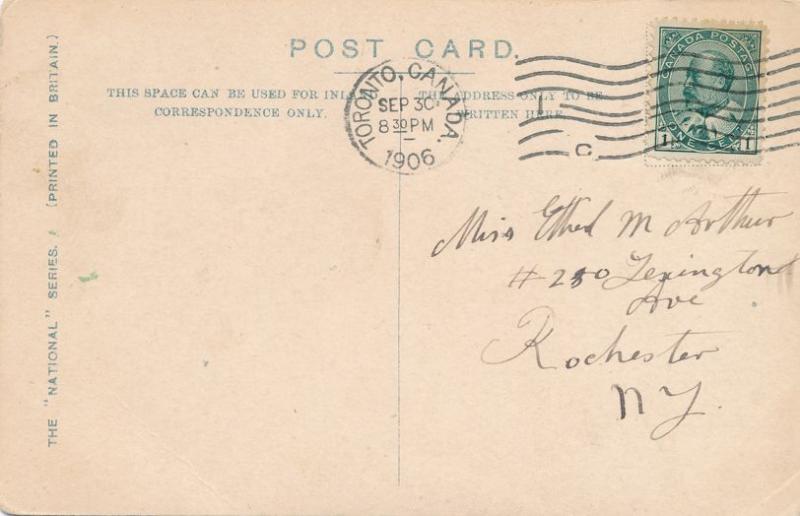 POST CARD.
THIS SPACE CAN BE USED FOR INLAND
CORRESPONDENCE ONLY.
THE ADDRESS ONLY TO BE
WRITTEN HERE
THE "NATIONAL" SERIES.
(PRINTED IN BRITAIN.)
TORONTO, CANADA.
SEP 30
8 30 PM
1906
C
CANADA POSTAGE
1 ONE CENT 1
Miss Ethel McArthur
#280 Lexington
Ave
Rochester
NY.